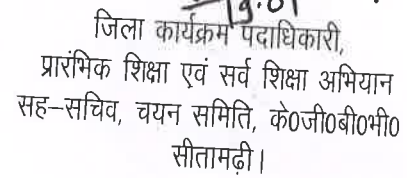 जिला कार्यक्रम पदाधिकारी,
प्रारंभिक शिक्षा एवं सर्व शिक्षा अभियान
सह–सचिव, चयन समिति, के0जी0बी0भी0
सीतामढ़ी।